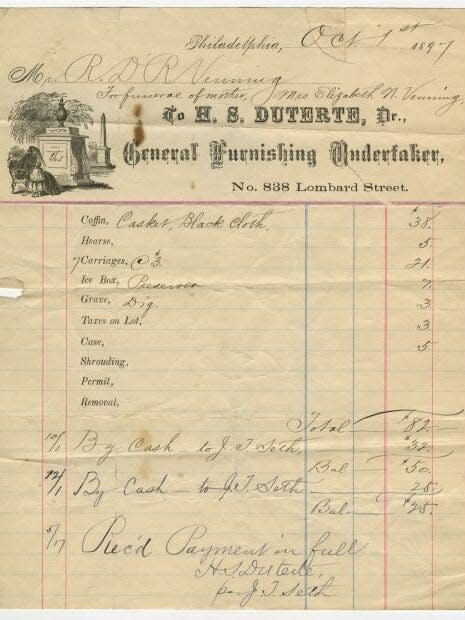 Philadelphia, Oct 1st 1897
Mr R. D R Venning
For funeral of mother, Mrs Elizabeth N. Venning,
To H. S. DUTERTE, Dr.,
General Furnishing Undertaker,
No. 838 Lombard Street.
Coffin, Casket, Black Cloth, $38.
Hearse, 5
7 Carriages, @ $3. 21.
Ice Box, Preserver 7.
Grave, Dig. 3
Taxes on Lot, 3
Case, 5
Shrouding,
Permit,
Removal,
Total $82.
10/1 By Cash to J. T. Seth, $32.
Bal $50.
12/1 By Cash — to J. T. Seth 25
Bal. $25.
5/17 Rec'd Payment in full
H. S. Duterte,
per J. T. Seth